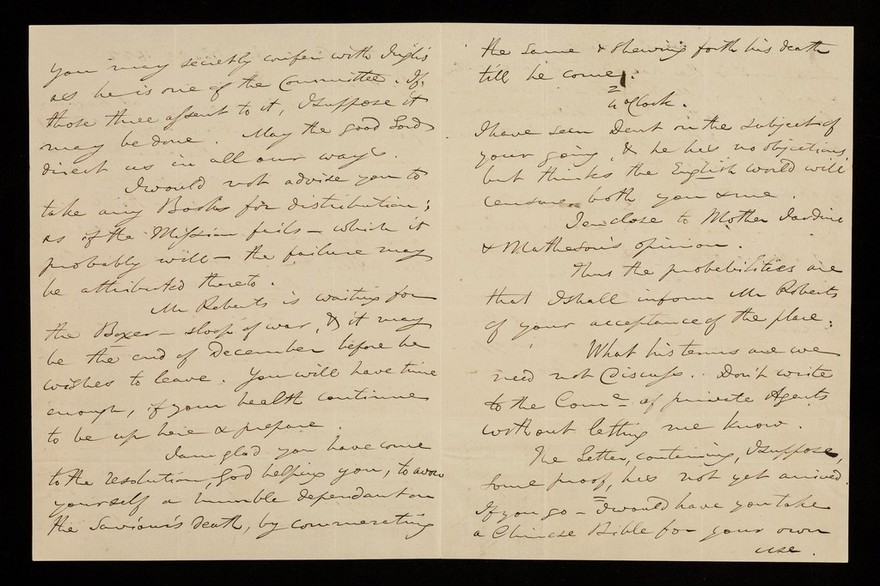 you may secretly confer with Inglis
as he is one of the Committee. If,
those three assent to it, I suppose it
may be done. May the good Lord
direct us in all our ways.
I would not advise you to
take any Books for distribution;
as if the Mission fails – which it
probably will – the failure may
be attributed thereto.
Mr Roberts is waiting for
the Boxer – sloop of war, & it may
be the end of December before he
wishes to leave. You will have time
enough, if your health continue
to be up here & prepare.
I am glad you have come
to the resolution, God helping you, to avow
yourself a humble dependant on
the Saviour's death, by commemorating
the same & shewing forth his death
till he come.
o'Clock.
I have seen Dent on the subject of
your going, & he has no objections
but thinks the English world will
censure both you & me.
I enclose to Mother Jardine
& Matheson's opinion.
Thus the probabilities are
that I shall inform Mr Roberts
of your acceptance of the place;
What his terms are we
need not Discuss. Don't write
to the Comee of private Agents
without letting me know.
The Letter, containing, I suppose,
some proof, has not yet arrived.
If you go – I would have you take
a Chinese Bible for your own
use.